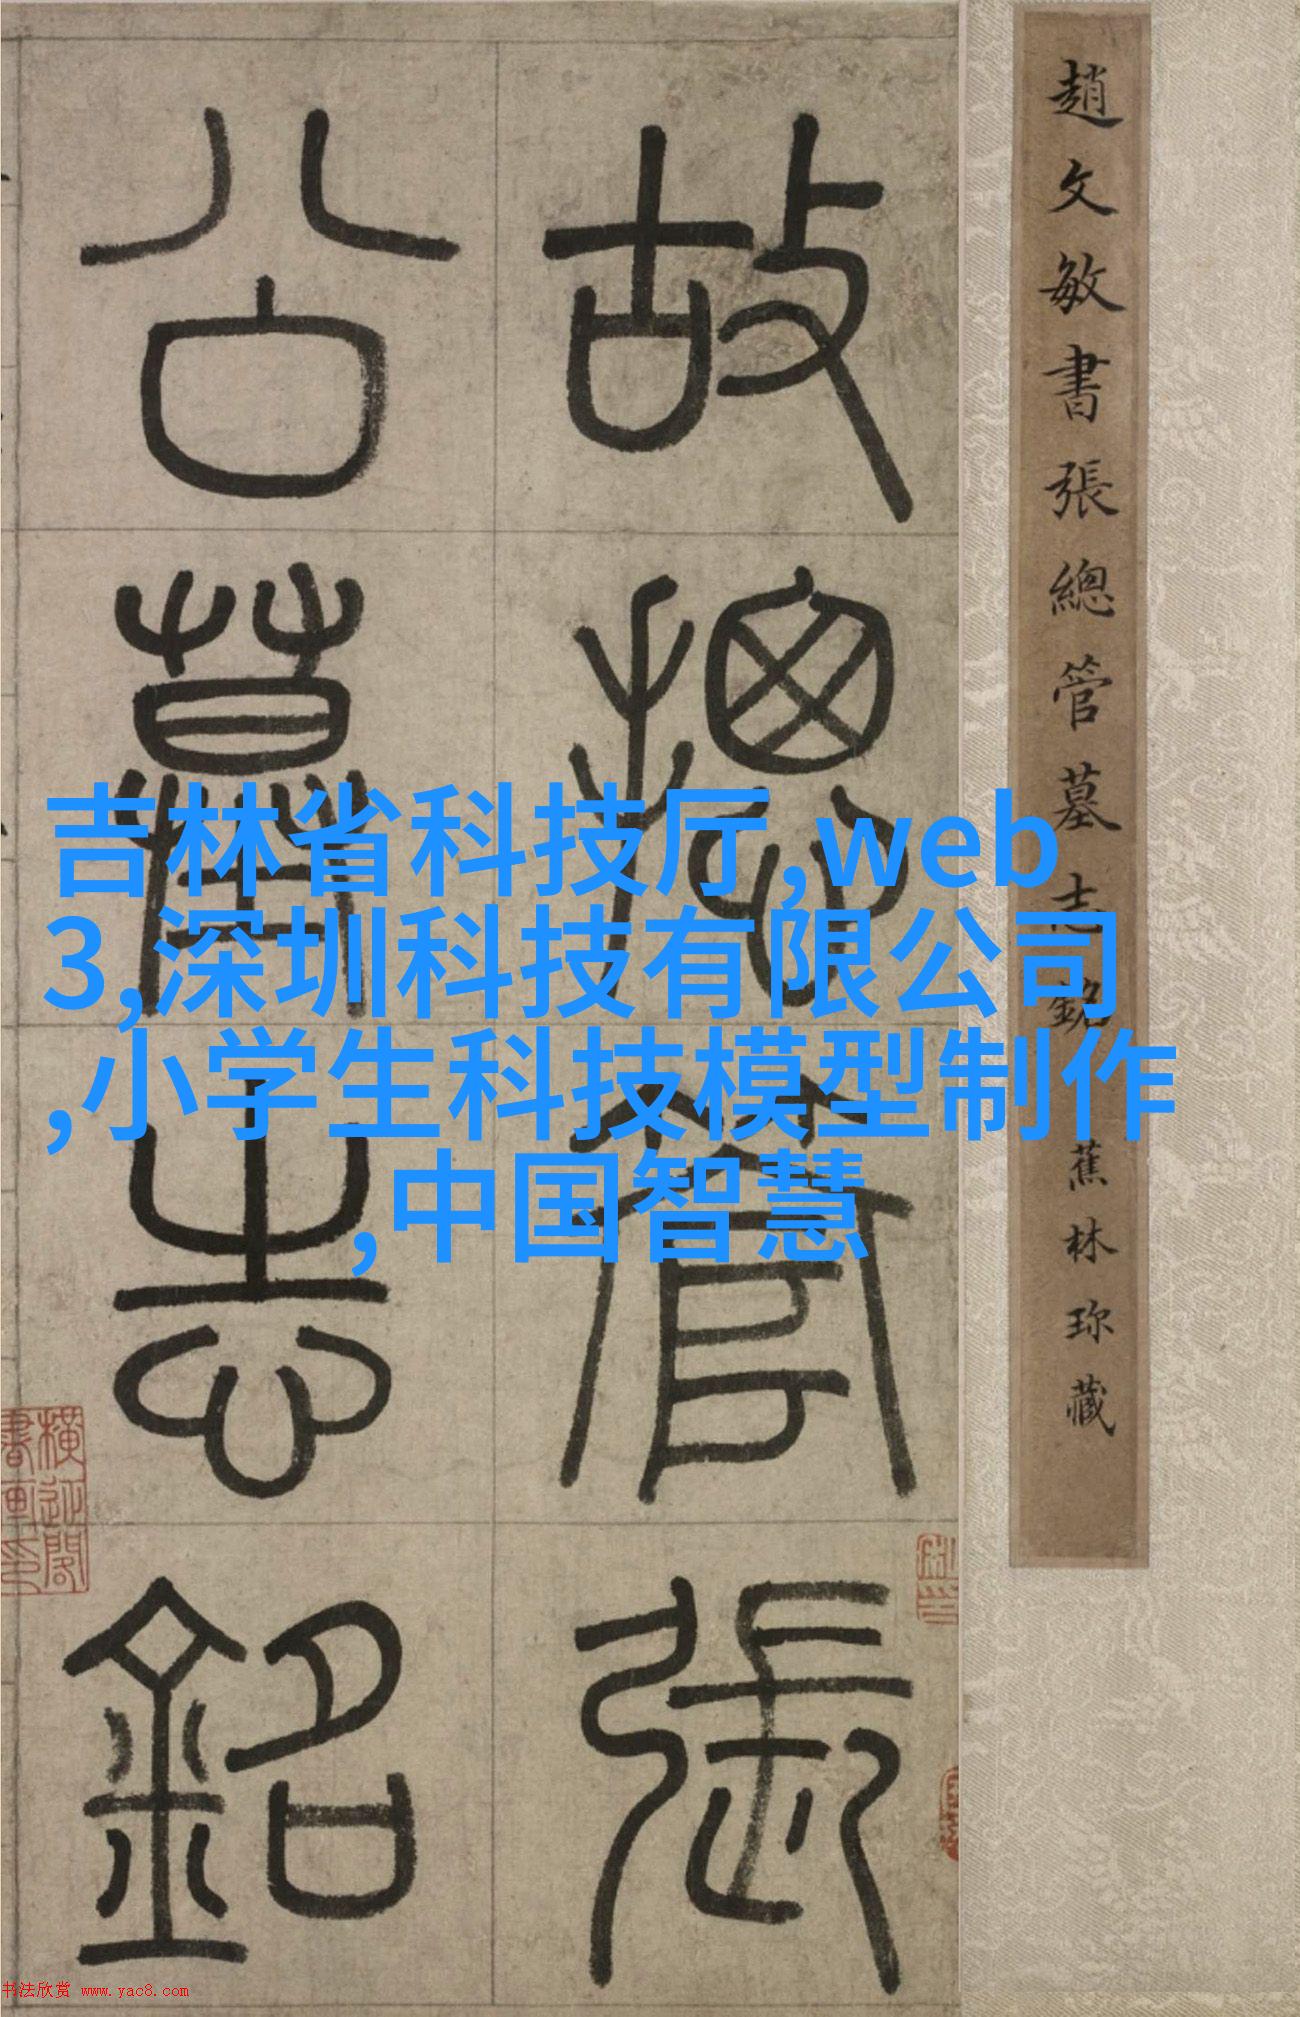 趙文敏書張總管墓志銘
蕉林珍藏
故摠管張
公墓志銘
吉林省科技厅,web
3,深圳科技有限公司
,小学生科技模型制作
,中国智慧
书法欣赏 www.yac8.com